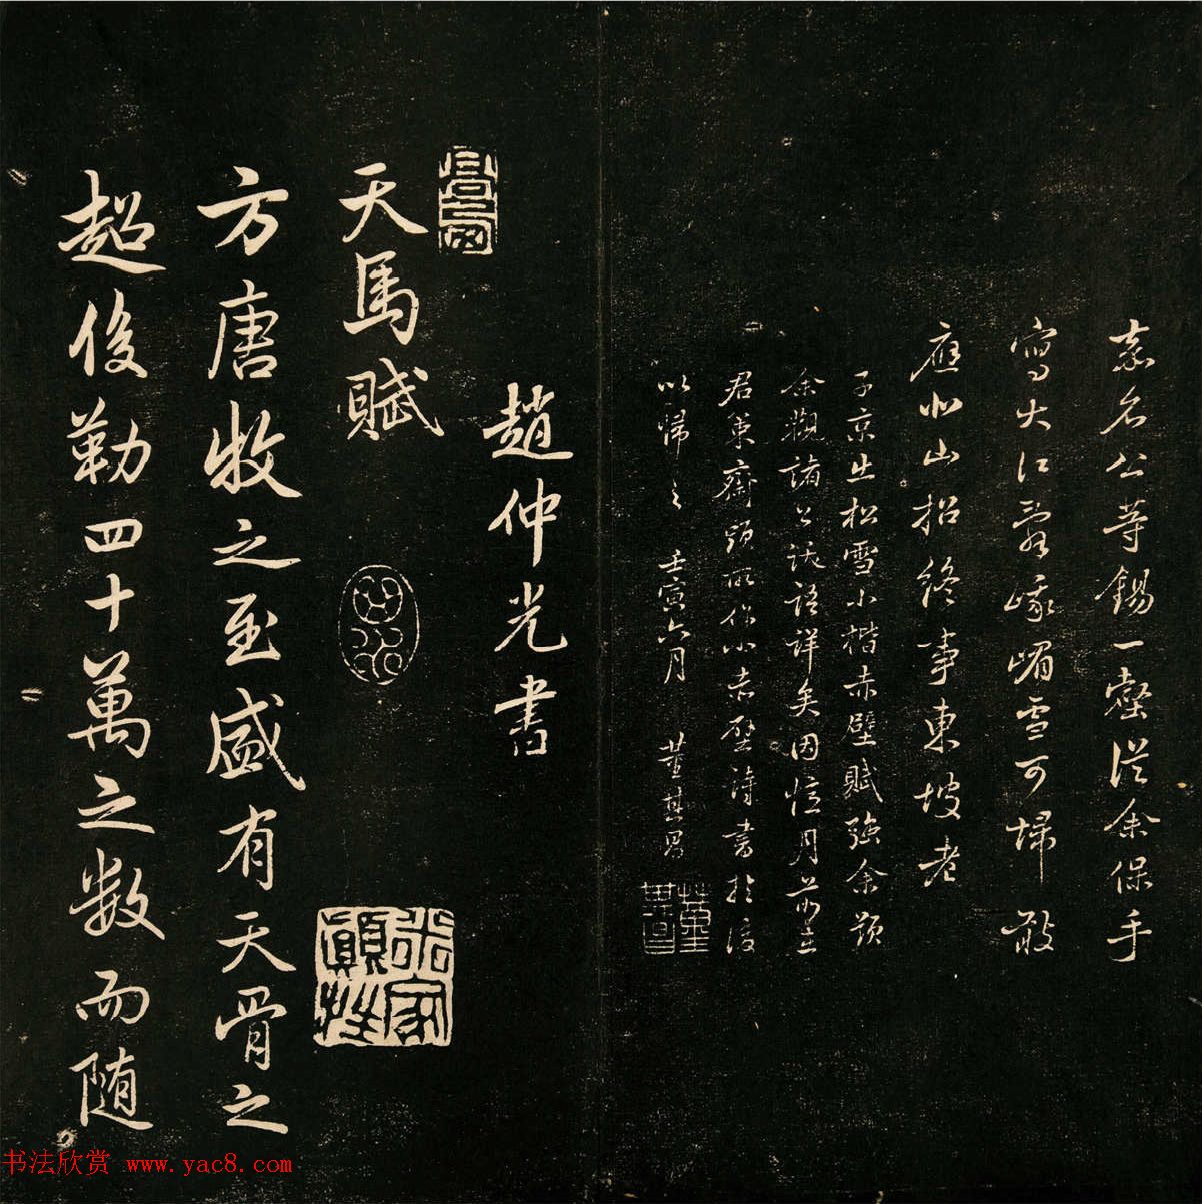 嘉名公等錫一壑從余保手
寫大江氣峨嵋雪可掃敢
應北山招終事東坡老
子京出松雪小楷赤壁賦強余題
余觀諸公跋語詳矣因憶月前在
君策齋頭所作小赤壁詩書於後
以歸之 壬寅六月 董其昌
趙仲光書
天馬賦
方唐牧之至盛有天骨之
超俊勒四十萬之數而随
书法欣赏 www.yac8.com